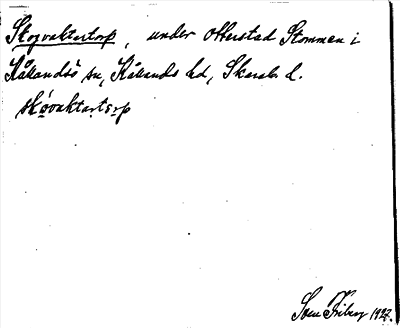 Skogvaktartorp, under Otterstad Stommen i
Kållandsö sn, Kållands hd, Skarab. l.
skóvaktartorp
Sven Friberg 1927.